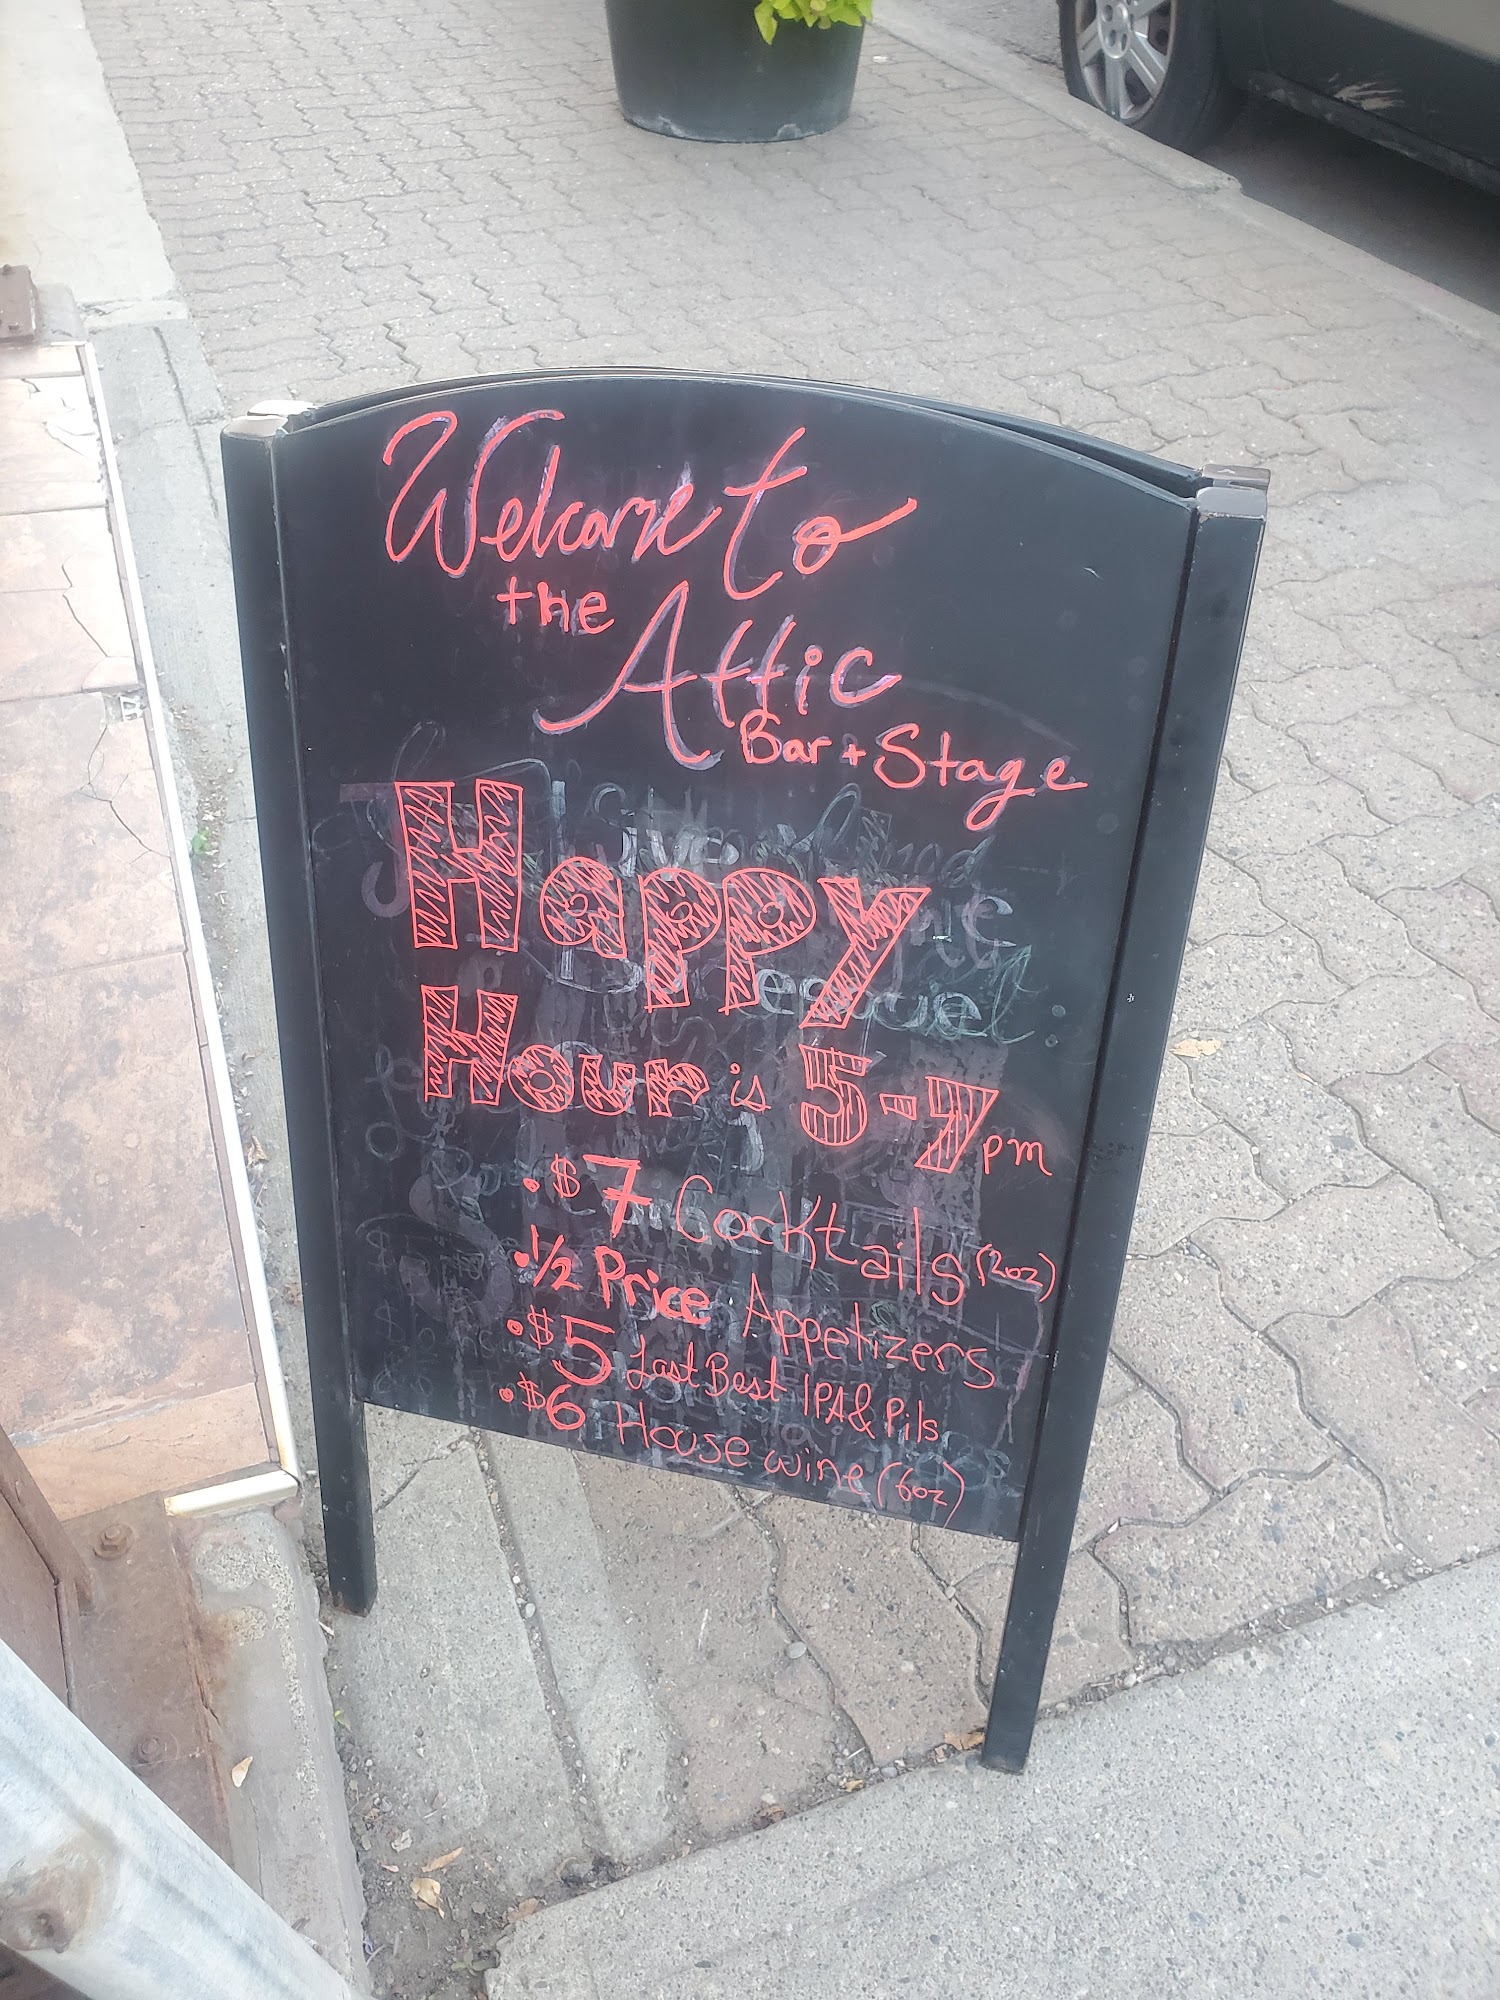 Welcome to
the Attic
Bar + Stage
Happy
Hour is 5-7pm
• $7 Cocktails (2oz)
• 1/2 Price Appetizers
• $5 Last Best IPA & Pils
• $6 House wine (6oz)